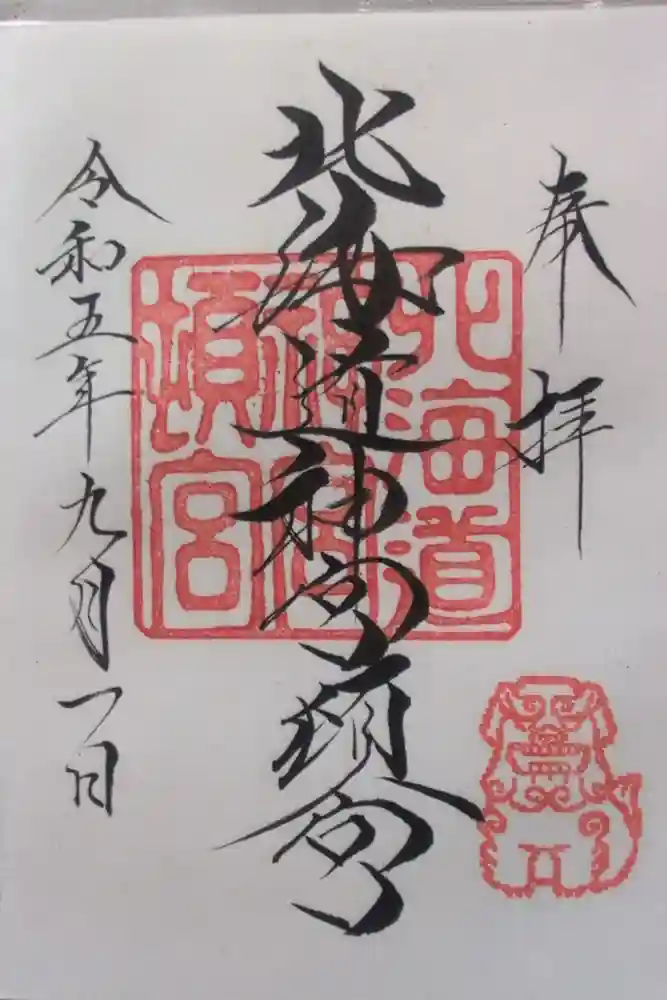 奉拝
北海道神宮頓宮
北海道
神宮
頓宮
令和五年九月一日